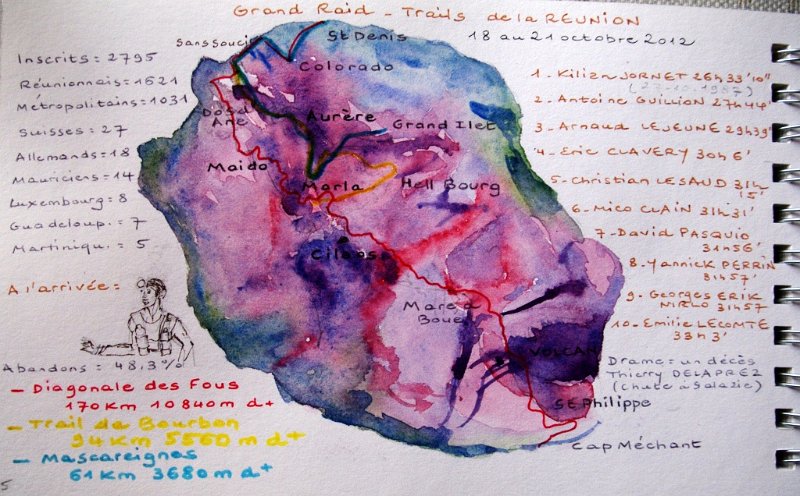 Grand Raid - Trails de la REUNION
18 au 21 octobre 2012
Inscrits = 2795
Réunionnais = 1621
Métropolitains = 1031
Suisses = 27
Allemands = 18
Mauriciens = 14
Luxembourg = 8
Guadeloup. = 7
Martiniqu. = 5
A l'arrivée =
Abandons = 48,3%
- Diagonale des Fous
170 Km 10840 m d+
- Trail de Bourbon
94 Km 5560 m d+
- Mascareignes
61 Km 3680 m d+
Sans Souci
St Denis
Colorado
Dos d'Ane
Aurère
Grand Ilet
Maido
Marla
Hell Bourg
Cilaos
Mare à Boue
VOLCAN
St Philippe
Cap Méchant
1 - Kilian JORNET 26H 33'10"
(27.10.1987)
2 - Antoine GUILLON 27H44'
3 - Arnaud LEJEUNE 29H39'
4 - Eric CLAVERY 30H 6'
5 - Christian LESAUD 31H
15'
6 - Mico CLAIN 31H31'
7 - David PASQUIO
31H56'
8 - Yannick PERRIN
31H57'
9 - Georges ERIK
31H57
10 - Emilie LECOMTE
33H3'
Drame = un décès
Thierry DELAPREZ
(Chute à Salazie)
5